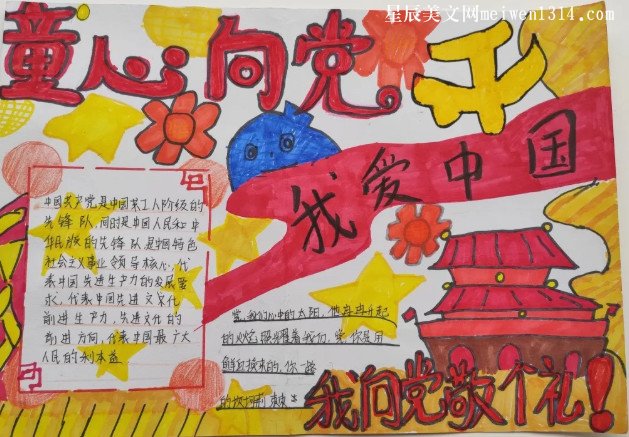 星辰美文网meiwen1314.com
童心向党
我爱中国
中国共产党是中国工人阶级的
先锋队,同时是中国人民和中
华民族的先锋队,是中国特色
社会主义事业领导核心,代
表中国先进生产力的发展要
求,代表中国先进文化
前进生产力,先进文化的
前进方向,代表中国最广大
人民的利本益
党,我们心中的太阳,他冉冉升起
的火焰,照耀着我们,党,你是用
的
我向党敬个礼!